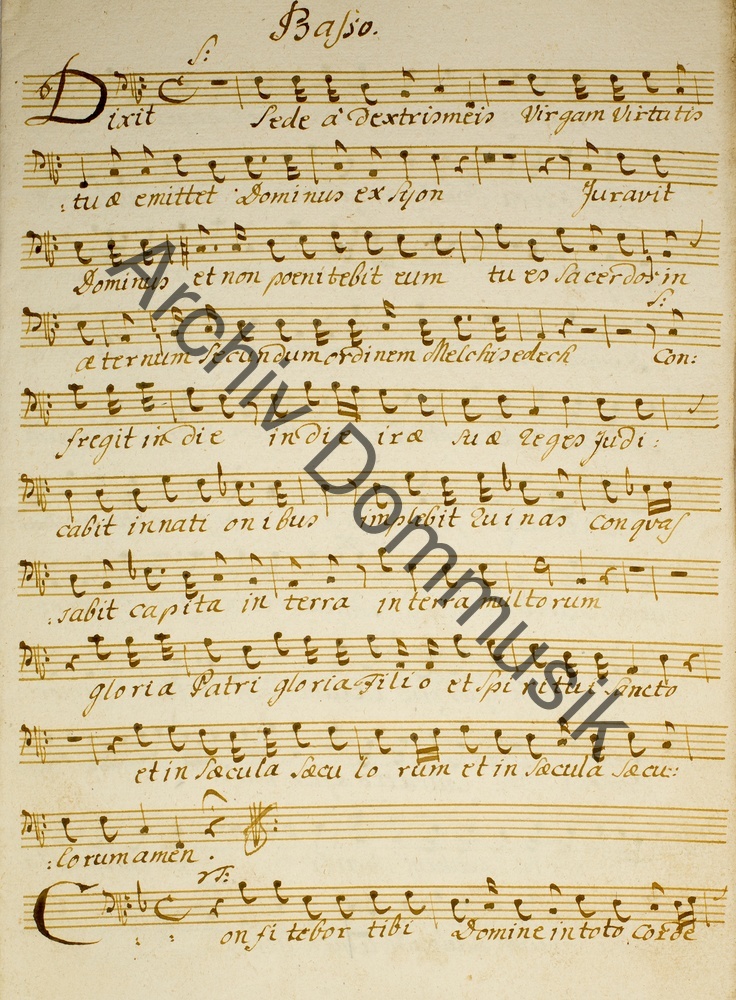 Basso.
S:
Dixit Sede a Dextris meis Virgam Virtutis
: tuæ emittet Dominus ex Syon Juravit
Dominus et non poenitebit eum tu es Sacerdos in
S:
æternum Secundum ordinem Melchisedech Con:
fregit in die in die iræ suæ Reges Judi:
cabit in nati onibus implebit Ruinas Conquas
:sabit capita in terra in terra multorum
gloria Patri gloria Filio et Spiritui Sancto
et in Sæcula Sæcu lo rum et in Sæcula Sæcu:
:lorum amen.
T:
Confitebor tibi Domine in toto Corde
Archiv Dommusik